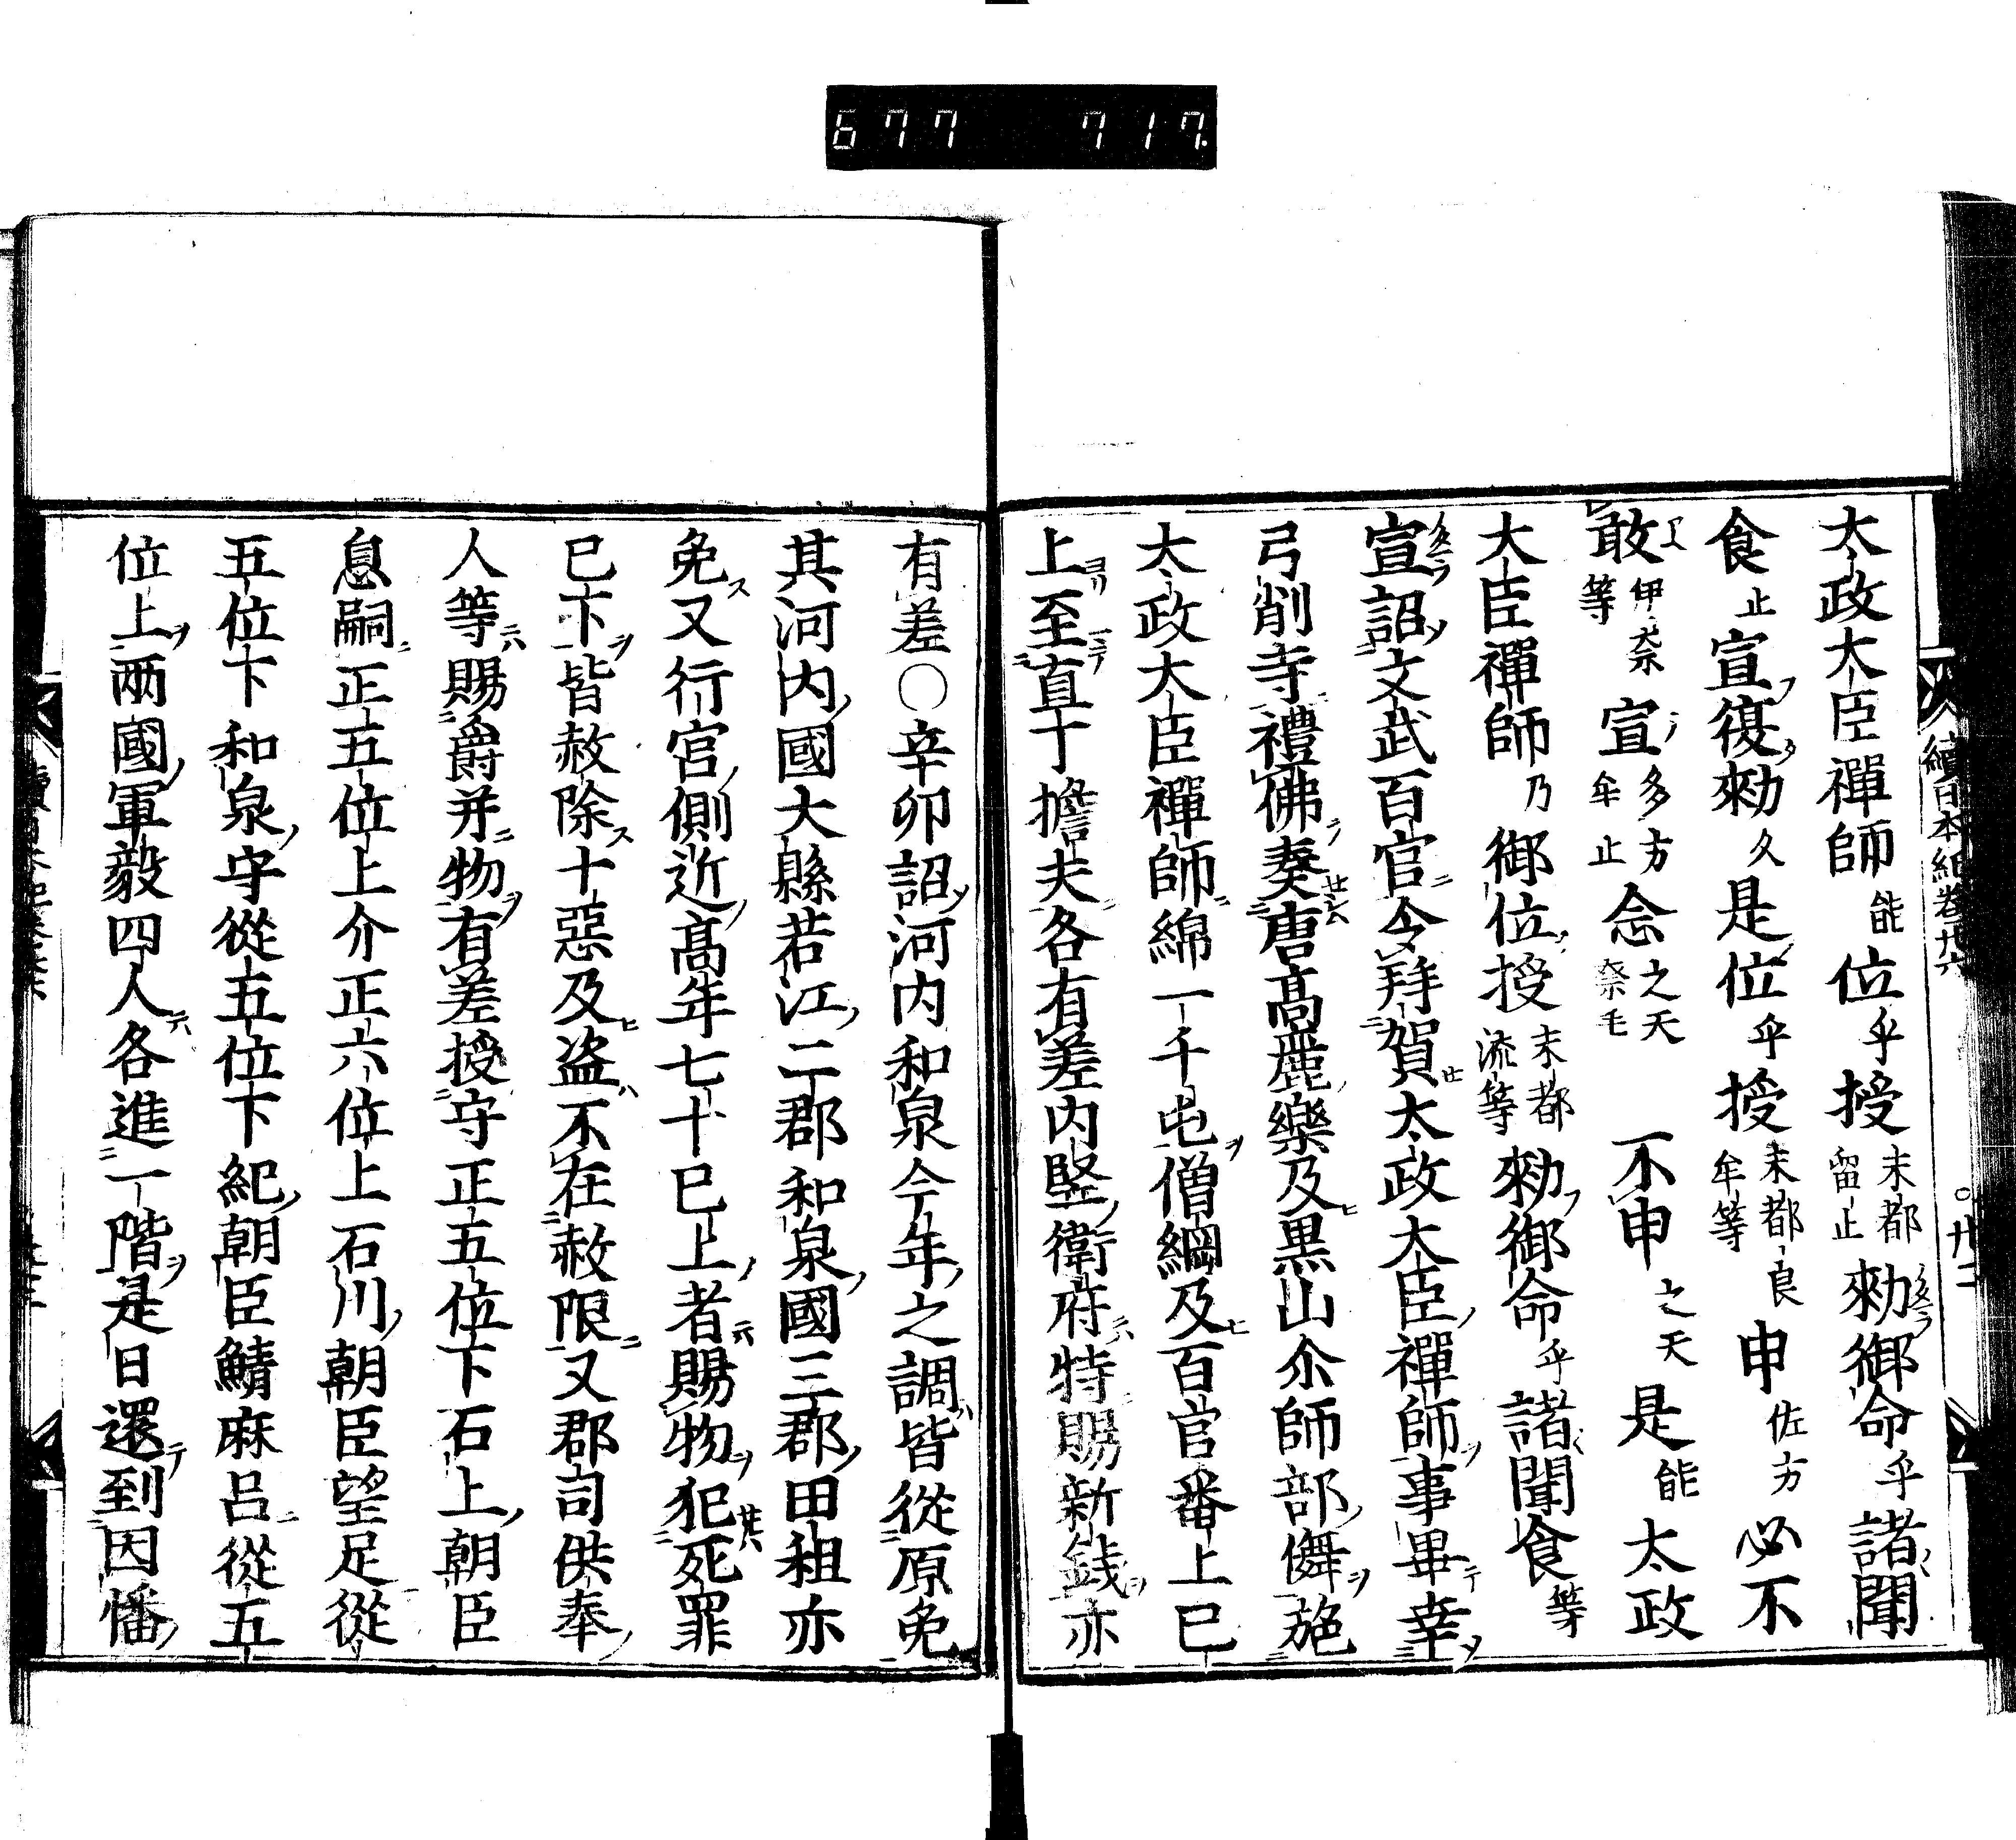 677 717.
續日本紀卷廿六
○廿二
太政大臣禪師能位乎授末都留止勅御命乎諸聞
食止宣復勅久是位乎授末都良牟等申佐方必不
敢伊奈等宣多方牟止念之天奈毛不申之天是能太政
大臣禪師乃御位授末都流等勅御命乎諸聞食等
宣詔文武百官令拜賀太政大臣禪師事畢幸
弓削寺禮佛奏唐高麗樂及黒山企師部儛施
太政大臣禪師綿一千屯僧綱及百官番上已
上至直丁擔夫各有差内竪衛府特賜新錢亦
有差○辛卯詔河内和泉今年之調皆從原免
其河内國大縣若江二郡和泉國三郡田租亦
免又行宮側近高年七十已上者賜物犯死罪
已下皆赦除十惡及盗不在赦限又郡司供奉
人等賜爵并物有差授守正五位下石上朝臣
息嗣正五位上介正六位上石川朝臣望足從
五位下和泉守從五位下紀朝臣鯖麻呂從五
位上兩國軍毅四人各進一階是日還到因幡